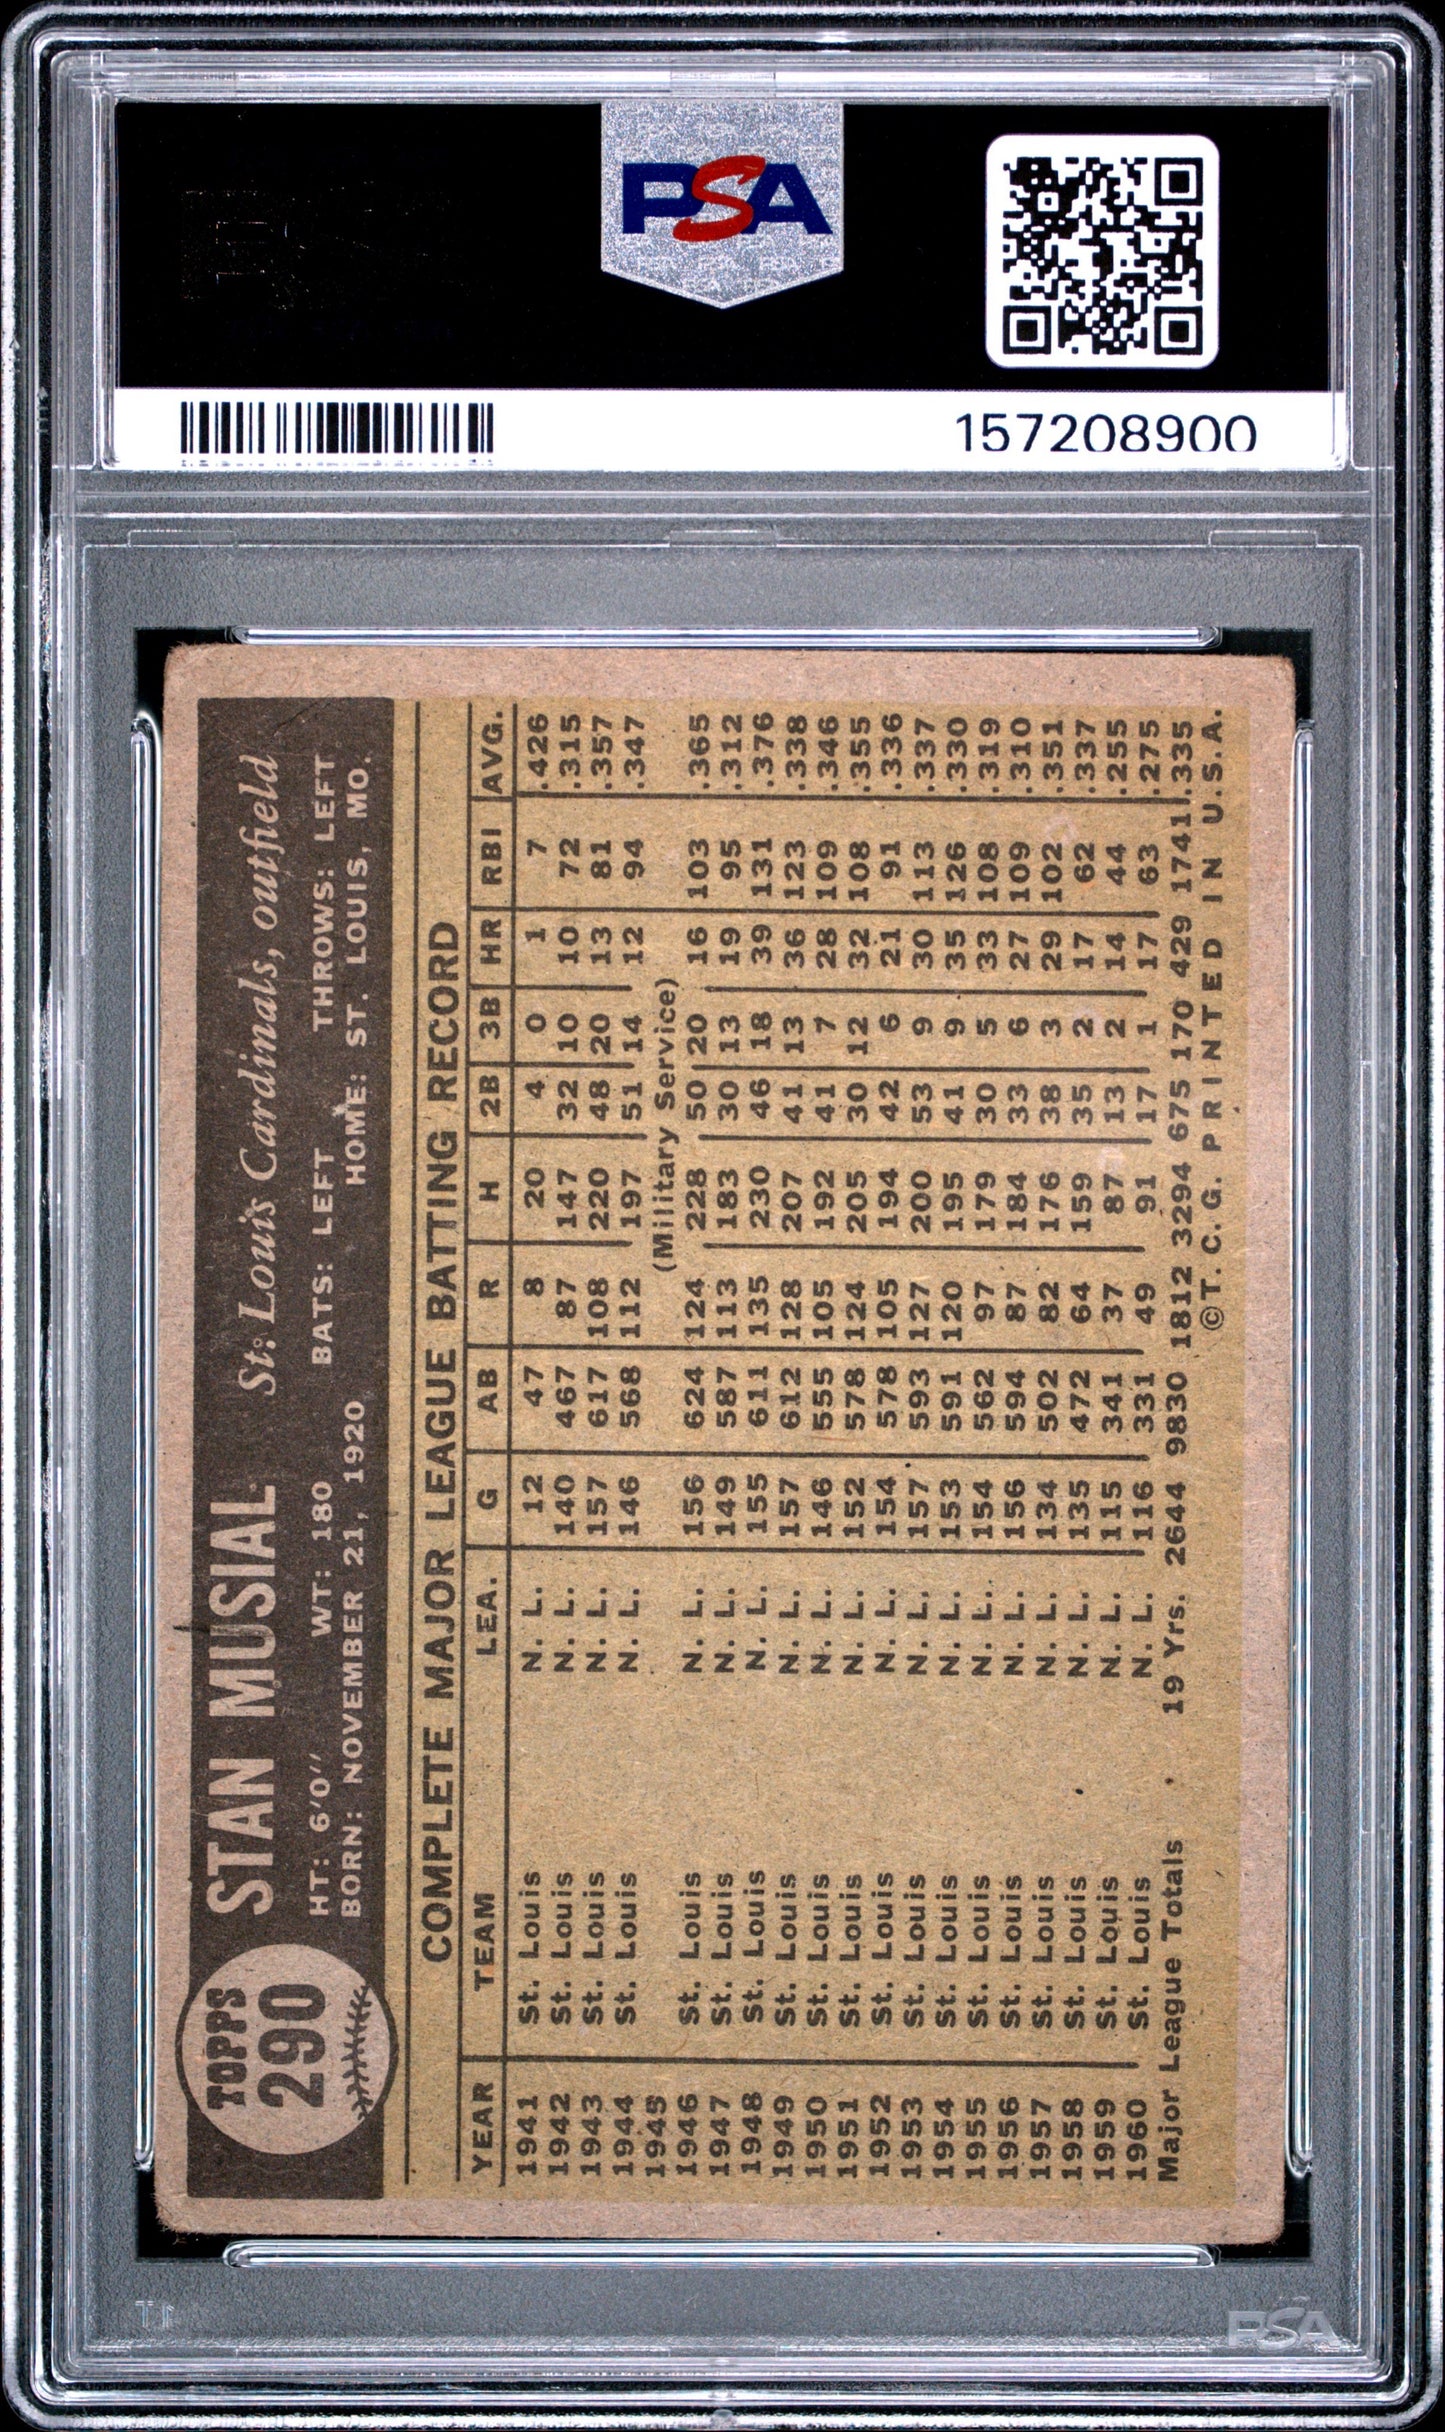 PSA
157208900
TOPPS
290
STAN MUSIAL St. Louis Cardinals, outfield
HT: 6'0" WT: 180 BATS: LEFT THROWS: LEFT
BORN: NOVEMBER 21, 1920 HOME: ST. LOUIS, MO.
COMPLETE MAJOR LEAGUE BATTING RECORD
YEAR TEAM LEA. G AB R H 2B 3B HR RBI AVG.
1941 St. Louis N. L. 12 47 8 20 4 0 1 7 .426
1942 St. Louis N. L. 140 467 87 147 32 10 10 72 .315
1943 St. Louis N. L. 157 617 108 220 48 20 13 81 .357
1944 St. Louis N. L. 146 568 112 197 51 14 12 94 .347
1945 (Military Service)
1946 St. Louis N. L. 156 624 124 228 50 20 16 103 .365
1947 St. Louis N. L. 149 587 113 183 30 13 19 95 .312
1948 St. Louis N. L. 155 611 135 230 46 18 39 131 .376
1949 St. Louis N. L. 157 612 128 207 41 13 36 123 .338
1950 St. Louis N. L. 146 555 105 192 41 7 28 109 .346
1951 St. Louis N. L. 152 578 124 205 30 12 32 108 .355
1952 St. Louis N. L. 154 578 105 194 42 6 21 91 .336
1953 St. Louis N. L. 157 593 127 200 53 9 30 113 .337
1954 St. Louis N. L. 153 591 120 195 41 9 35 126 .330
1955 St. Louis N. L. 154 562 97 179 30 5 33 108 .319
1956 St. Louis N. L. 156 594 87 184 33 6 27 109 .310
1957 St. Louis N. L. 134 502 82 176 38 3 29 102 .351
1958 St. Louis N. L. 135 472 64 159 35 2 17 62 .337
1959 St. Louis N. L. 115 341 37 87 13 2 14 44 .255
1960 St. Louis N. L. 116 331 49 91 17 1 17 63 .275
Major League Totals 19 Yrs. 2644 9830 1812 3294 675 170 429 1741 .335
©T. C. G. PRINTED IN U.S.A.
PSA